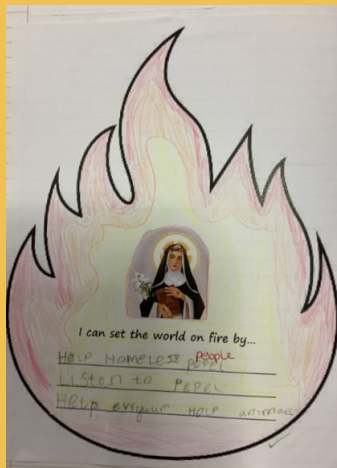 I can set the world on fire by...
people
Help Homeless pepel
Listen to Pepel.
Help evrywun Help animals